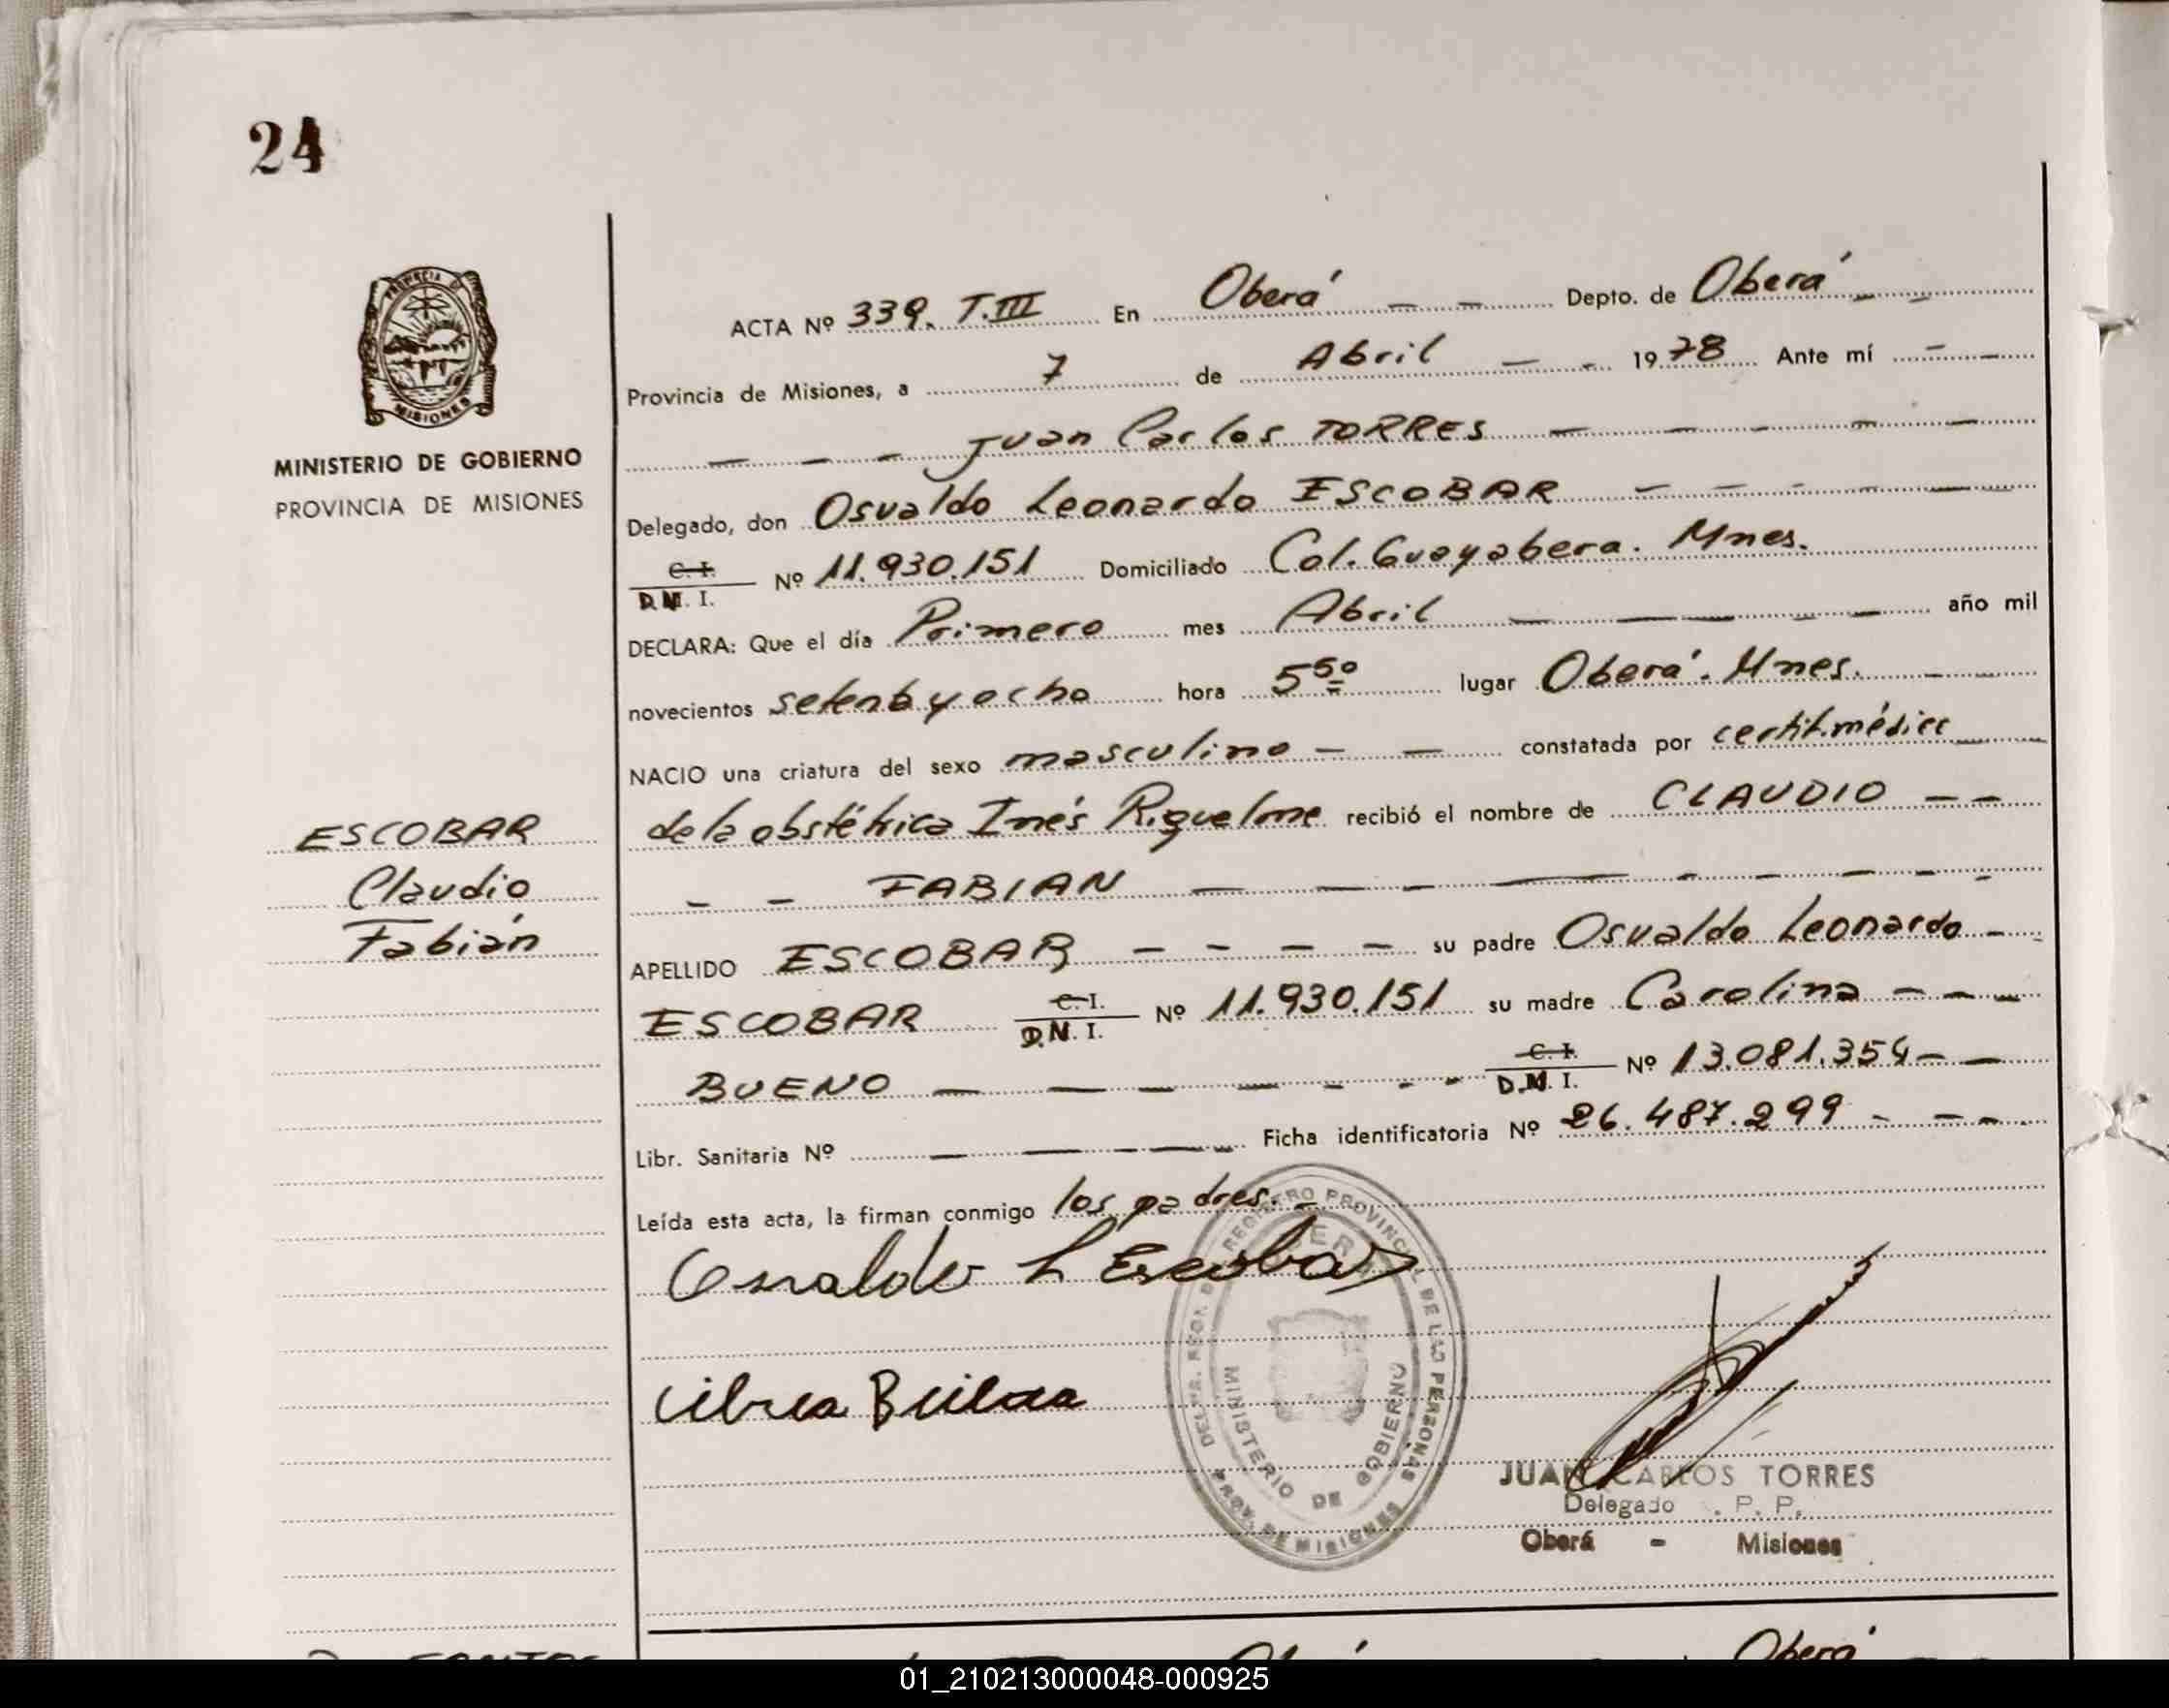 24
PROVINCIA
MISIONES
MINISTERIO DE GOBIERNO
PROVINCIA DE MISIONES
ACTA Nº 339. T.III En Oberá — — Depto. de Oberá — —
Provincia de Misiones, a 7 de Abril — — 1978 Ante mí — —
— — — Juan Carlos TORRES — — — — —
Delegado, don Osvaldo Leonardo ESCOBAR — — — — —
C. I. / D.N. I. Nº 11.930.151 Domiciliado Col. Guayabera. Mnes.
DECLARA: Que el día Primero mes Abril — — — — año mil
novecientos setenta y ocho hora 5 50 lugar Oberá. Mnes. — —
NACIO una criatura del sexo masculino — — constatada por certif. médico
de la obstétrica Inés Riquelme recibió el nombre de CLAUDIO — —
— — FABIAN — — — — — — — —
ESCOBAR
Claudio
Fabián
APELLIDO ESCOBAR — — — — su padre Osvaldo Leonardo —
ESCOBAR C. I. / D.N. I. Nº 11.930.151 su madre Carolina — — —
BUENO — — — — — — — C. I. / D.N. I. Nº 13.081.354 — —
Libr. Sanitaria Nº — — — — Ficha identificatoria Nº 26.487.299 — — —
Leída esta acta, la firman conmigo los padres. —
Osvaldo L Escobar
MINISTERIO DE GOBIERNO
PROV. DE MISIONES
JUAN CARLOS TORRES
Delegado . P. P.
Oberá - Misiones
Oberá
01_210213000048-000925